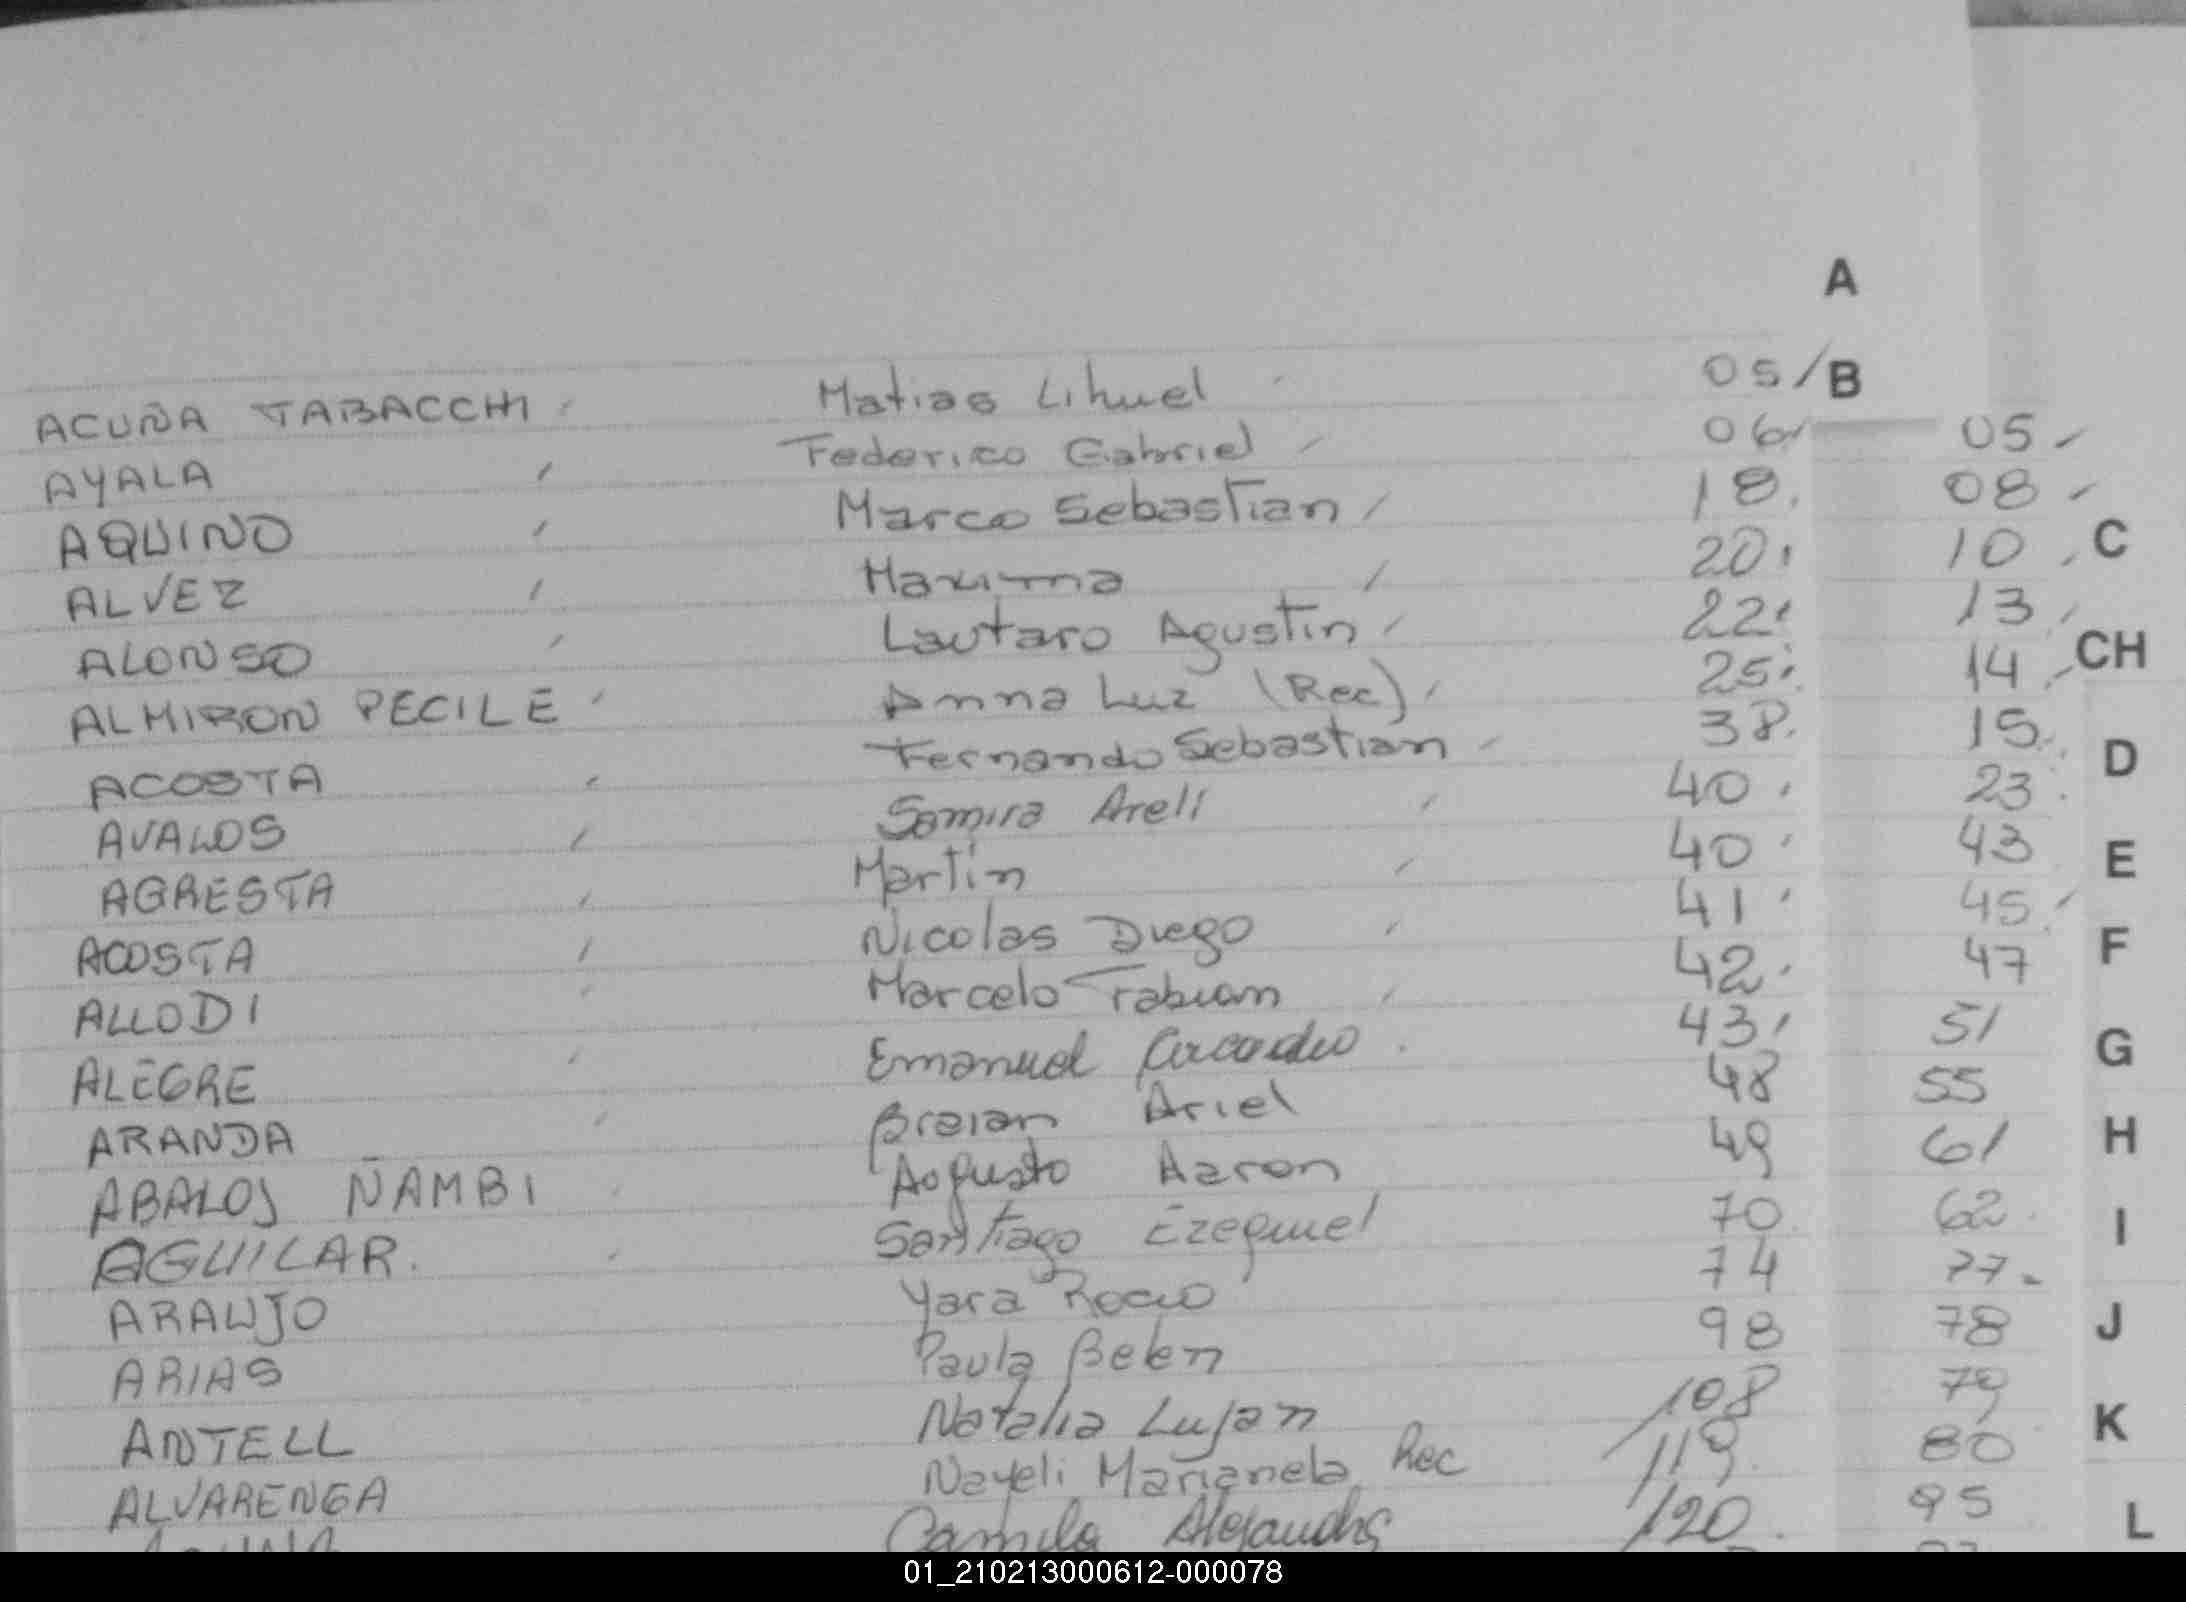 A
ACUÑA TABACCHI Matias Lihuel 05 / B
AYALA Federico Gabriel 06 05
AQUINO Marco Sebastian 18 08
ALVEZ Maxima 20 10 C
ALONSO Lautaro Agustin 22 13
ALMIRON PECILE Anna Luz (Rec) 25 14 CH
ACOSTA Fernando Sebastian 38 15 D
AVALOS Samira Areli 40 23
AGRESTA Martin 40 43 E
ACOSTA Nicolas Diego 41 45
ALLODI Marcelo Fabian 42 47 F
ALEGRE Emanuel 43 51 G
ARANDA Braian Ariel 48 55
ABALOS ÑAMBI Augusto Aaron 49 61 H
AGUILAR. Santiago Ezequiel 70 62 I
ARAUJO Yara Rocio 74 77
ARIAS Paula Belen 98 78 J
ANTELL Natalia Lujan 108 79
ALVARENGA Nayeli Marianela Rec 119 80 K
Camila Alejandra 120 95 L
01_210213000612-000078